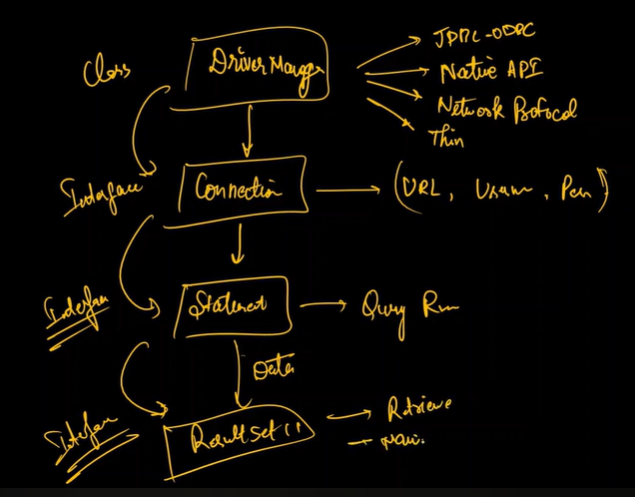 JDBC-ODBC
Class DriverManager
Native API
Network Protocol
Thin
Interface Connection (URL, Usernm, Pass)
Interface Statement Query Run
Data
Interface ResultSet() Retrieve